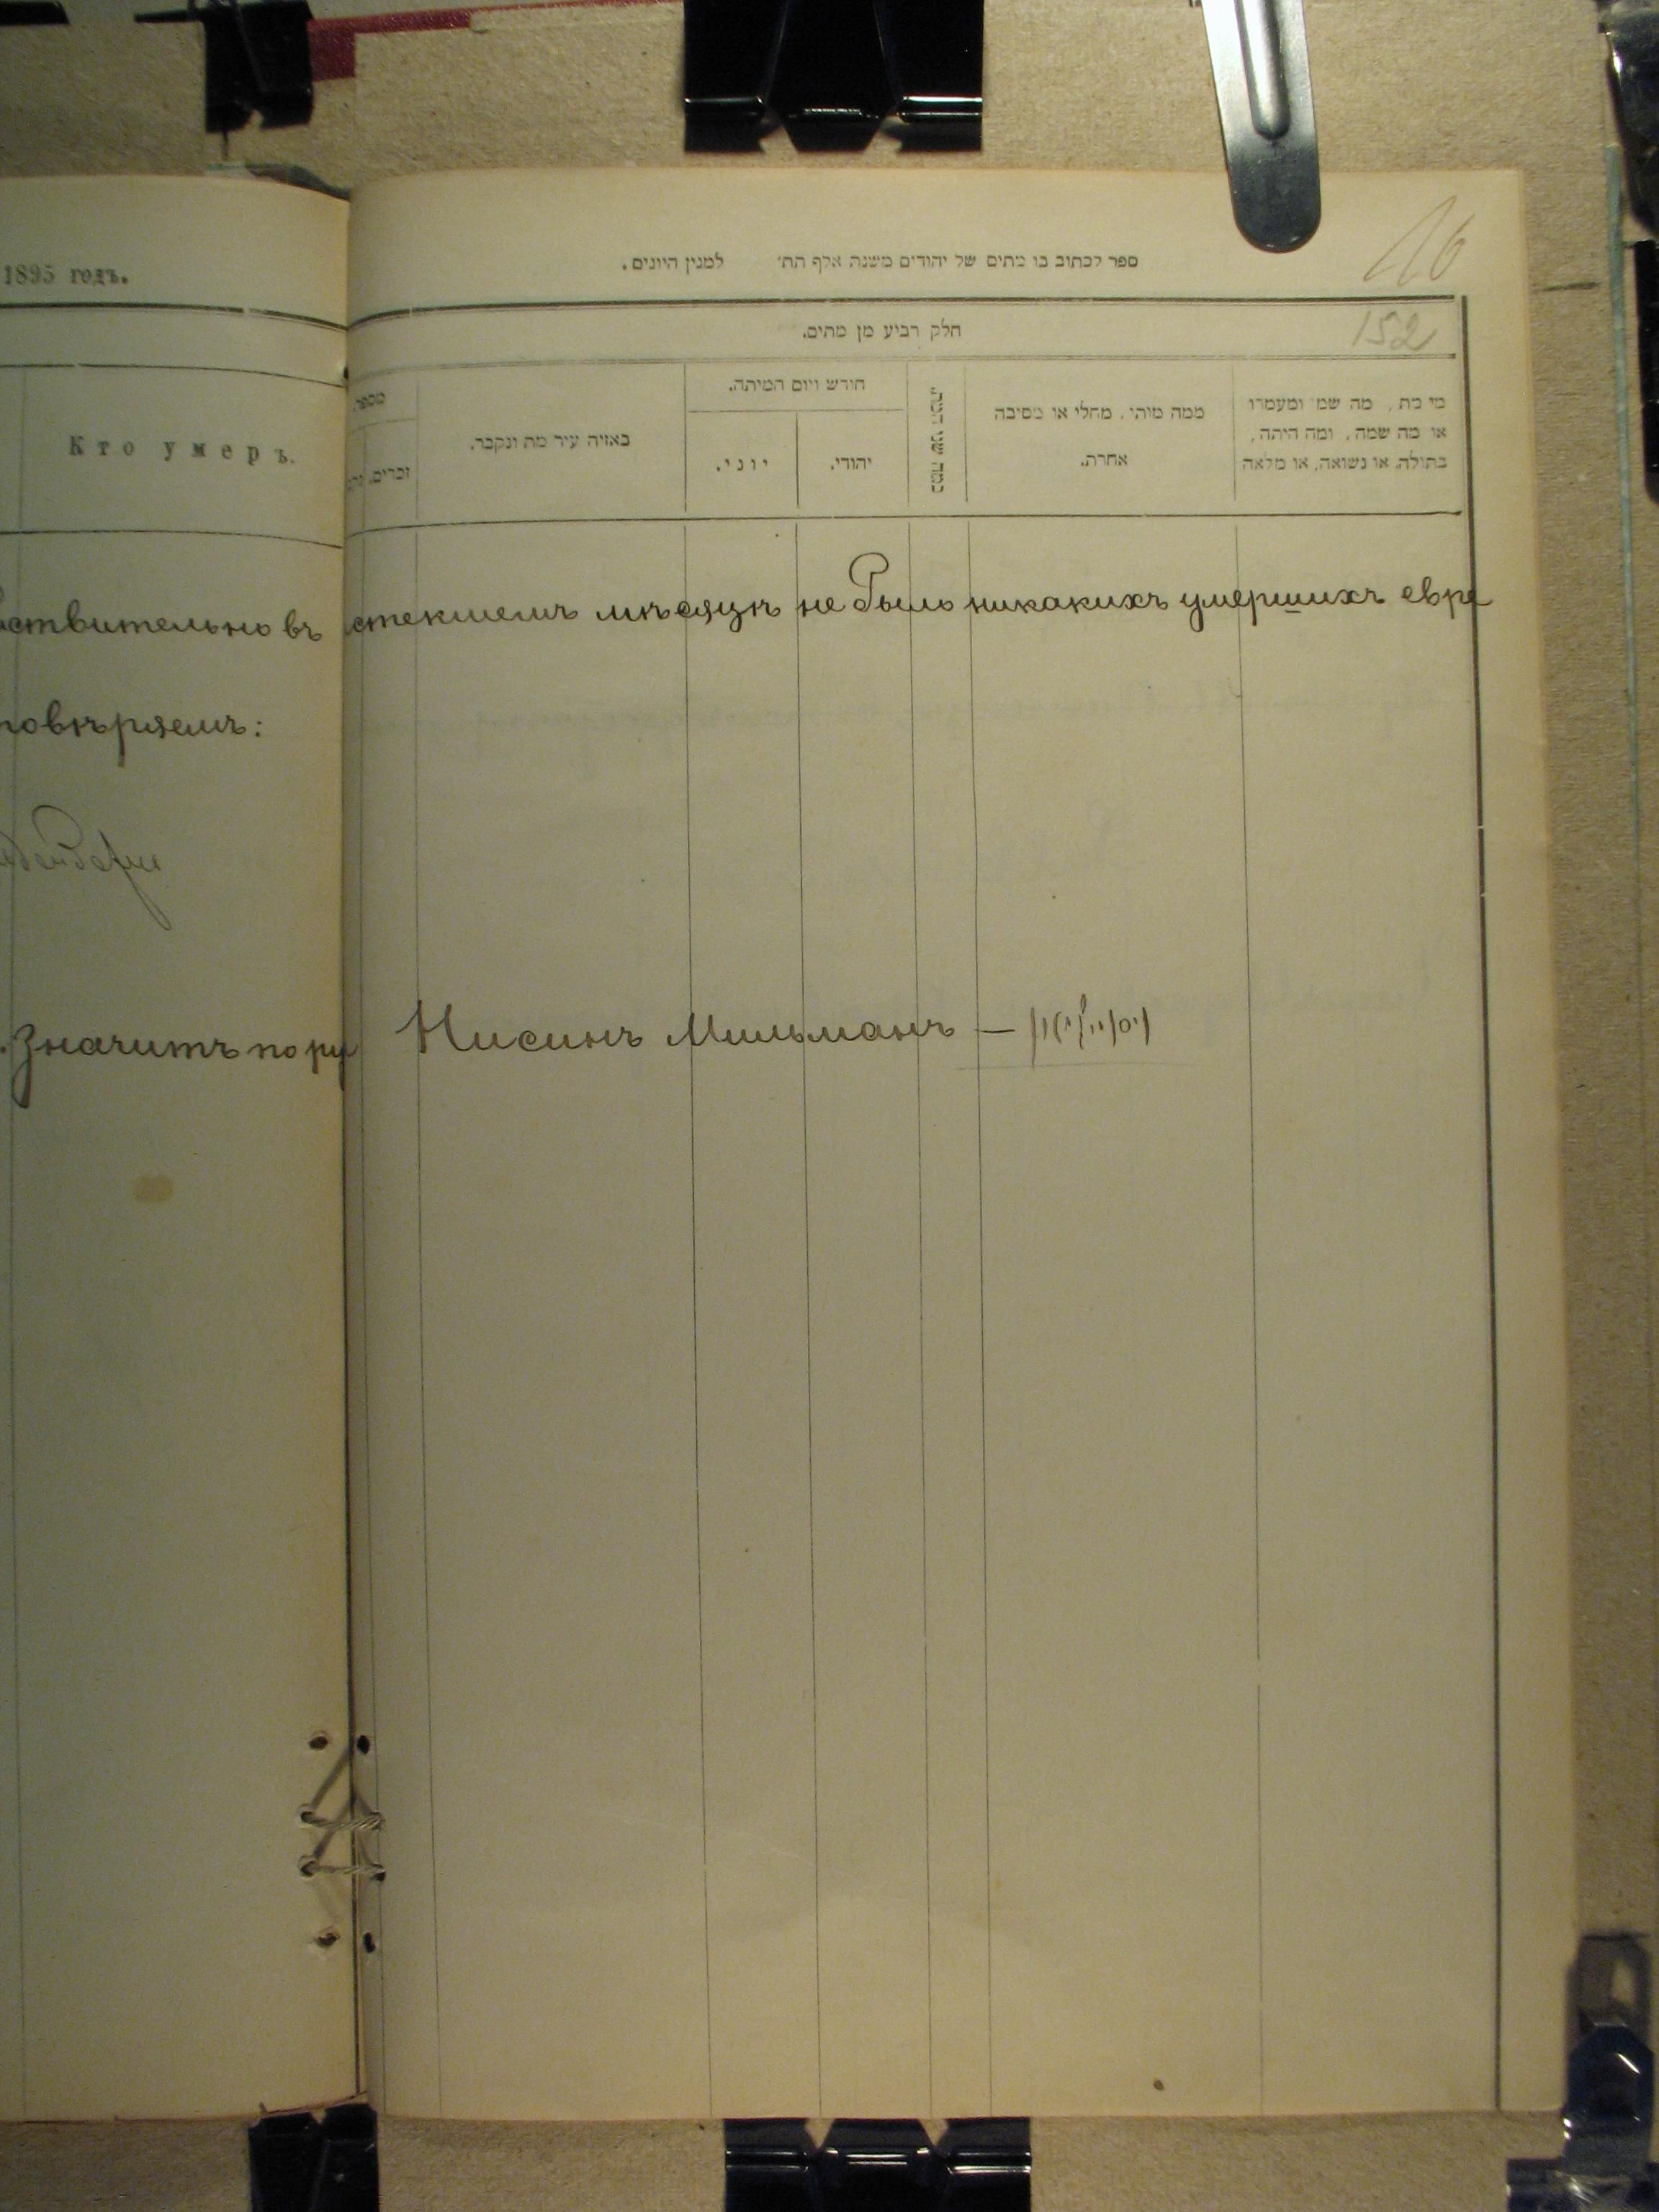 1895 годъ.
Кто умеръ.
ствительно въ
повѣряемъ:
значитъ по ру
16
ספר לכתוב בו מתים של יהודים משנת אלף תת׳ למנין היונים.
152
חלק רביע מן מתים.
מי מת, מה שמו ומעמדו
או מה שמה, ומה היתה,
בתולה או נשואה, או מלאה
ממה מותו, מחלי או מסיבה
אחרת.
כמה שני המת.
חודש ויום המיתה.
יהודי.
יוני.
באיזה עיר מת ונקבר.
מספר
זכרים.
стекшемъ мѣсяцѣ не было никакихъ умершихъ евре
Нисинъ Мильманъ —